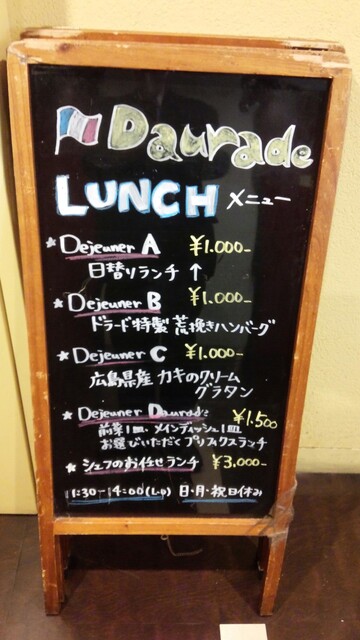 Daurade
LUNCH メニュー
★ Dejeuner A ¥1.000-
日替りランチ ↑
★ Dejeuner B ¥1.000-
ドラード特製 荒挽きハンバーグ
★ Dejeuner C ¥1.000-
広島県産 カキのクリーム
グラタン
★ Dejeuner Daurade ¥1.500
前菜1皿、メインディッシュ1皿
お選びいただくプリフィクスランチ
★ シェフのお任せランチ ¥3.000-
11:30-14:00(L.o) 日・月・祝日(休み)